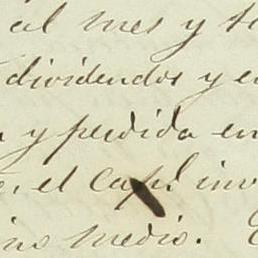 al mes y
dividendos y
y perdida en
el Cap.l inv
ino medio.